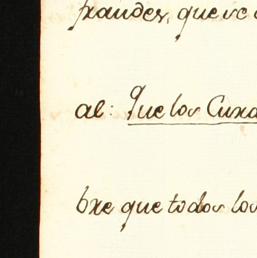 fraudes, que se
al: Que los Cura
bre que todos los